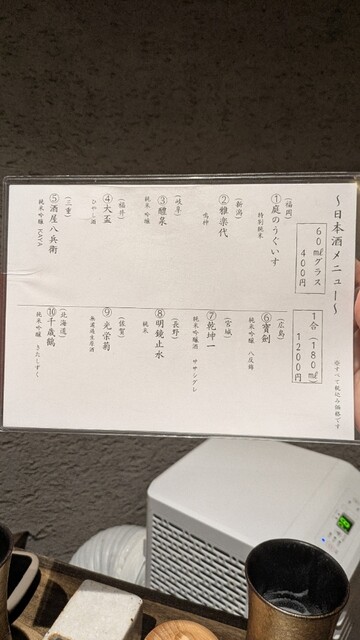 〜日本酒メニュー〜
※すべて税込み価格です
60㎖グラス
400円
1合(180㎖)
1200円
(福岡)
①庭のうぐいす
特別純米
(新潟)
②雅楽代
鳴神
(岐阜)
③醴泉
純米吟醸
(福井)
④大盃
ひやし酒
(三重)
⑤酒屋八兵衛
純米吟醸 KAYA
(広島)
⑥寳剣
純米吟醸 八反錦
(宮城)
⑦乾坤一
純米吟醸酒 ササシグレ
(長野)
⑧明鏡止水
純米
(佐賀)
⑨光栄菊
無濾過生原酒
(北海道)
⑩千歳鶴
純米吟醸 きたしずく